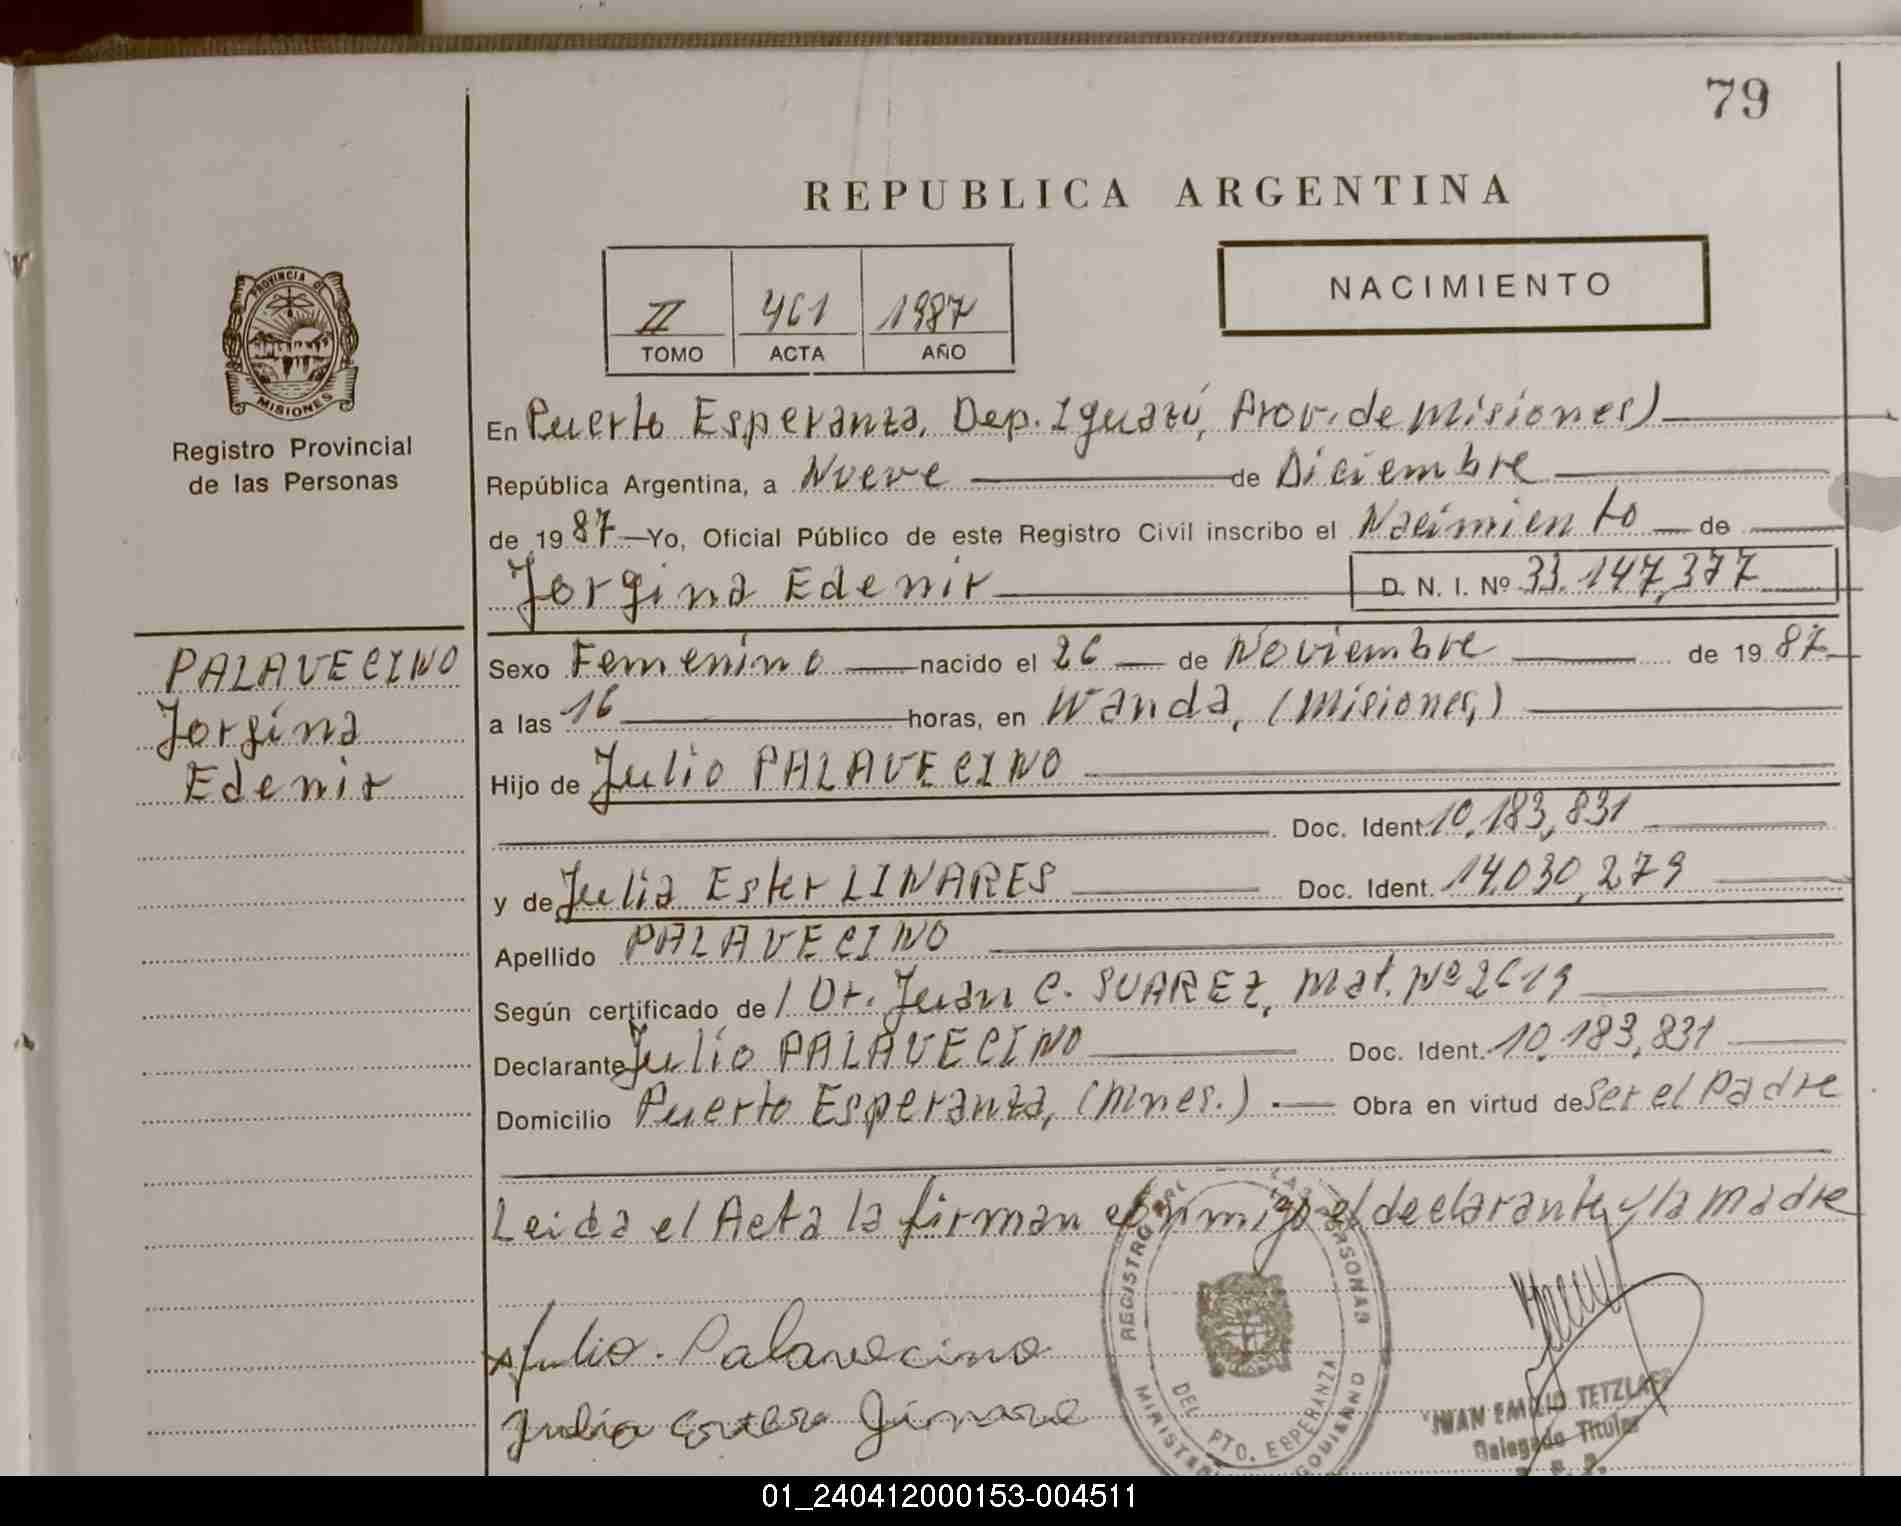 79
REPUBLICA ARGENTINA
NACIMIENTO
II 461 1987
TOMO ACTA AÑO
PROVINCIA DE
MISIONES
Registro Provincial
de las Personas
En Puerto Esperanza, Dep. Iguazú, Prov. de Misiones)
República Argentina, a Nueve de Diciembre
de 1987 Yo, Oficial Público de este Registro Civil inscribo el Nacimiento de
Jorgina Edenir D. N. I. Nº 33.147,377
PALAVECINO
Jorgina
Edenir
Sexo Femenino nacido el 26 de Noviembre de 1987
a las 16 horas, en Wanda, (Misiones,)
Hijo de Julio PALAVECINO
Doc. Ident. 10,183,831
y de Julia Ester LINARES Doc. Ident. 14.030,279
Apellido PALAVECINO
Según certificado de / Dr. Juan C. SUAREZ, Mat. Nº 2619
Declarante Julio PALAVECINO Doc. Ident. 10,183,831
Domicilio Puerto Esperanza, (Mnes.) Obra en virtud de Ser el Padre
Leida el Acta la firman conmigo el declarante y la Madre
Julio Palavecino
Julia
REGISTRO PERSONAS
DEL PTO. ESPERANZA
JUAN EMILIO TETZLAFF
Delegado Titular
01_240412000153-004511